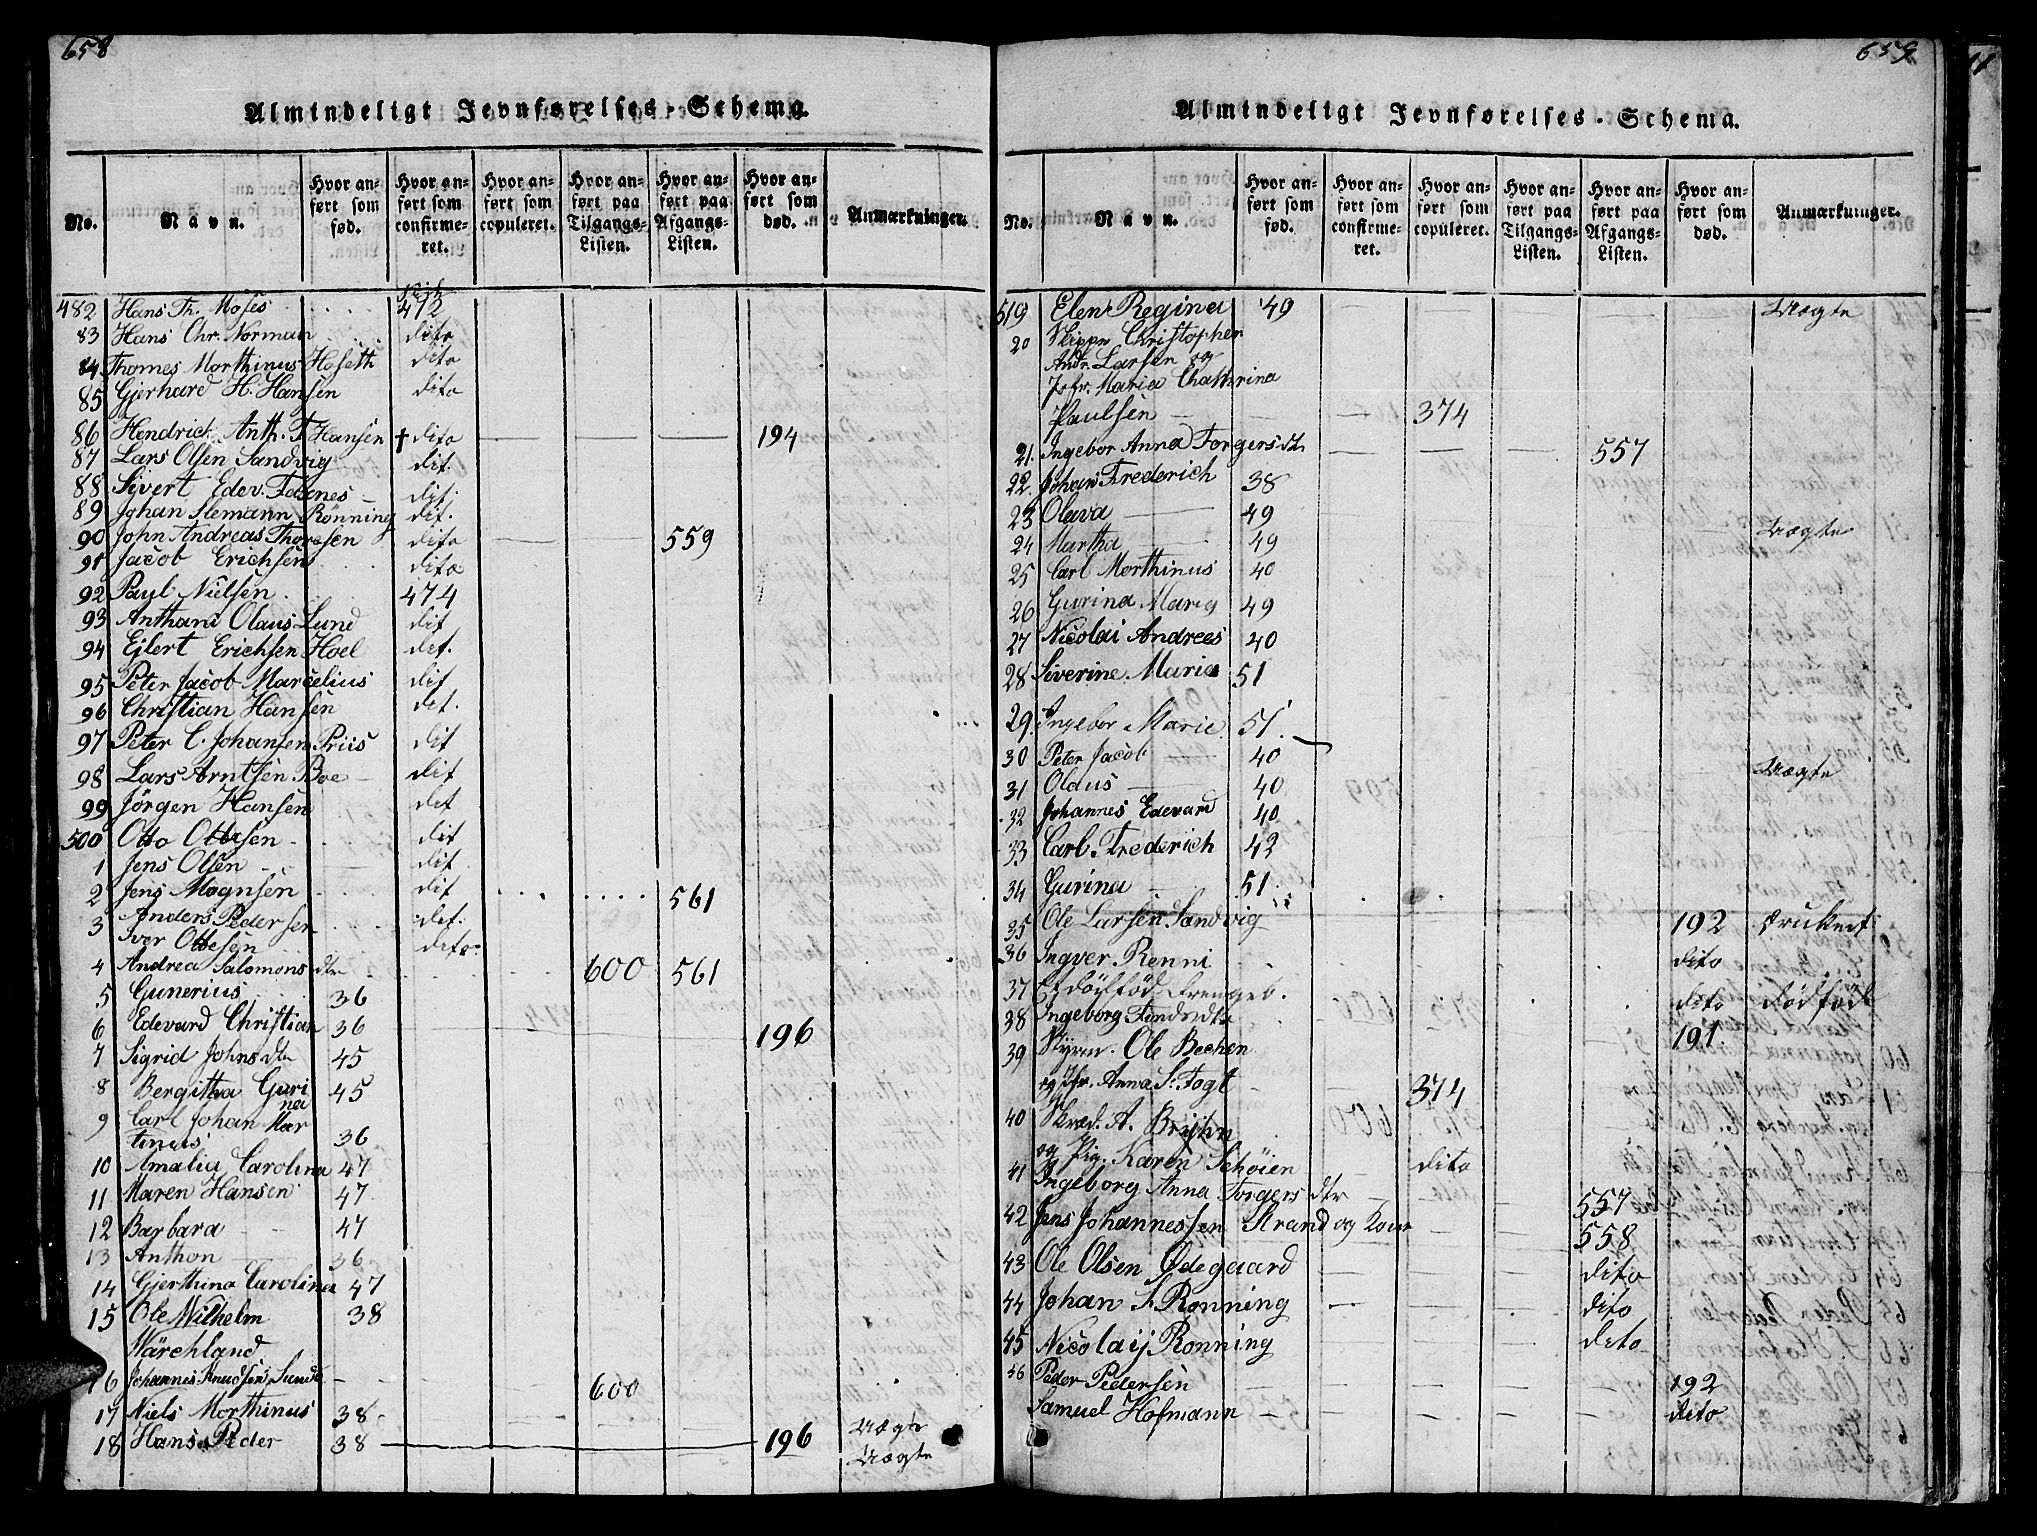 658
Almindeligt Jevnførelses-Schema.
No. Navn. Hvor anført som fød. Hvor anført som confirmeret. Hvor anført som copuleret. Hvor anført paa Tilgangs-Listen. Hvor anført paa Afgangs-Listen. Hvor anført som død. Anmærkninger.
482 Hans Th. Moses 472
83 Hans Chr. Norman dito
84 Thomes Morthinus Hoseth dito
85 Gjerhard H. Hansen dito
86 Hendrich Anth. F Hansen † dito 194
87 Lars Olsen Sandvig dit.
88 Sivert Edev. dit.
89 Johan Rönning dit.
90 John Andreas Thoresen dito 559
91 Jacob Erichsen dito
92 Paul Nielsen 474
93 Anthani Olaus Lund dit
94 Ejlert Erichsen Hoel det.
95 Peter Jacob Marcelius dit
96 Christian Hansen det.
97 Peter C. Johansen Priis dit
98 Lars Arntsen Boe dit
99 Jörgen Hansen det
500 Otto Ottesen dit
1 Jens Olsen dit
2 Jens Magnsen dit 561
3 Anders Pedersen det.
Iver Ottesen dito
4 Andrea Salomons dtr 600 561
5 Gunerius 36
6 Edevard Christian 36 196
7 Sigrid Johns dtr 45
8 Bergitha Guri 45
na
9 Carl Johan Mar
tinus 36
10 Amalia Carolina 47
11 Maren Hansen 47
12 Barbara 47
13 Anthon 36
14 Gjerthina Carolina 47
15 Ole Wilhelm 38
Wärchland
16 Johannes Knudsen Sunde 600
17 Niels Morthinus 38 Vægte
18 Hans Peder 38 196 Vægte
659
Almindeligt Jevnførelses-Schema.
No. Navn. Hvor anført som fød. Hvor anført som confirmeret. Hvor anført som copuleret. Hvor anført paa Tilgangs-Listen. Hvor anført paa Afgangs-Listen. Hvor anført som død. Anmærkninger.
519 Elen Regina 49 Vægte
20 Skippr Christopher
Andr. Larsen og
Jofr. Maria Chathrina
Paulsen 374
21. Ingebor Anna Torgers dtr 557
22. Johan Frederich 38
23 Olava 49
24 Martha 49 Vægte
25 Carl Morthinus 40
26 Gurina Maria 49
27 Nicolai Andrees 40
28 Siverine Maria 51
29. Ingebor Marie 51.
30 Peter Jacob 40
31 Olaus 40 Vægte
32 Johannes Edevard 40
33 Carl Frederich 42
34 Gurina 51.
35 Ole Larsen Sandvig 192 druknet
36 Ingver Renni dito
37 Et dödfödt Drengeb. dito dödföd
38 Ingeborg 191
39 Styrm. Ole Bechen
og Jfr. Anna S. Fogt 374
40 Skræd. A. Brijhn
og Pig. Karen Schöien dito
41 Ingeborg Anna Torgers dtr 557
42 Jens Johannessen Strand og Kone 558
43 Ole Olsen Ødegaard dito
44 Johan S Ronning dito
45 Nicolaij Ronning dito
46 Peder Pedersen 192
Samuel Hofmann dito